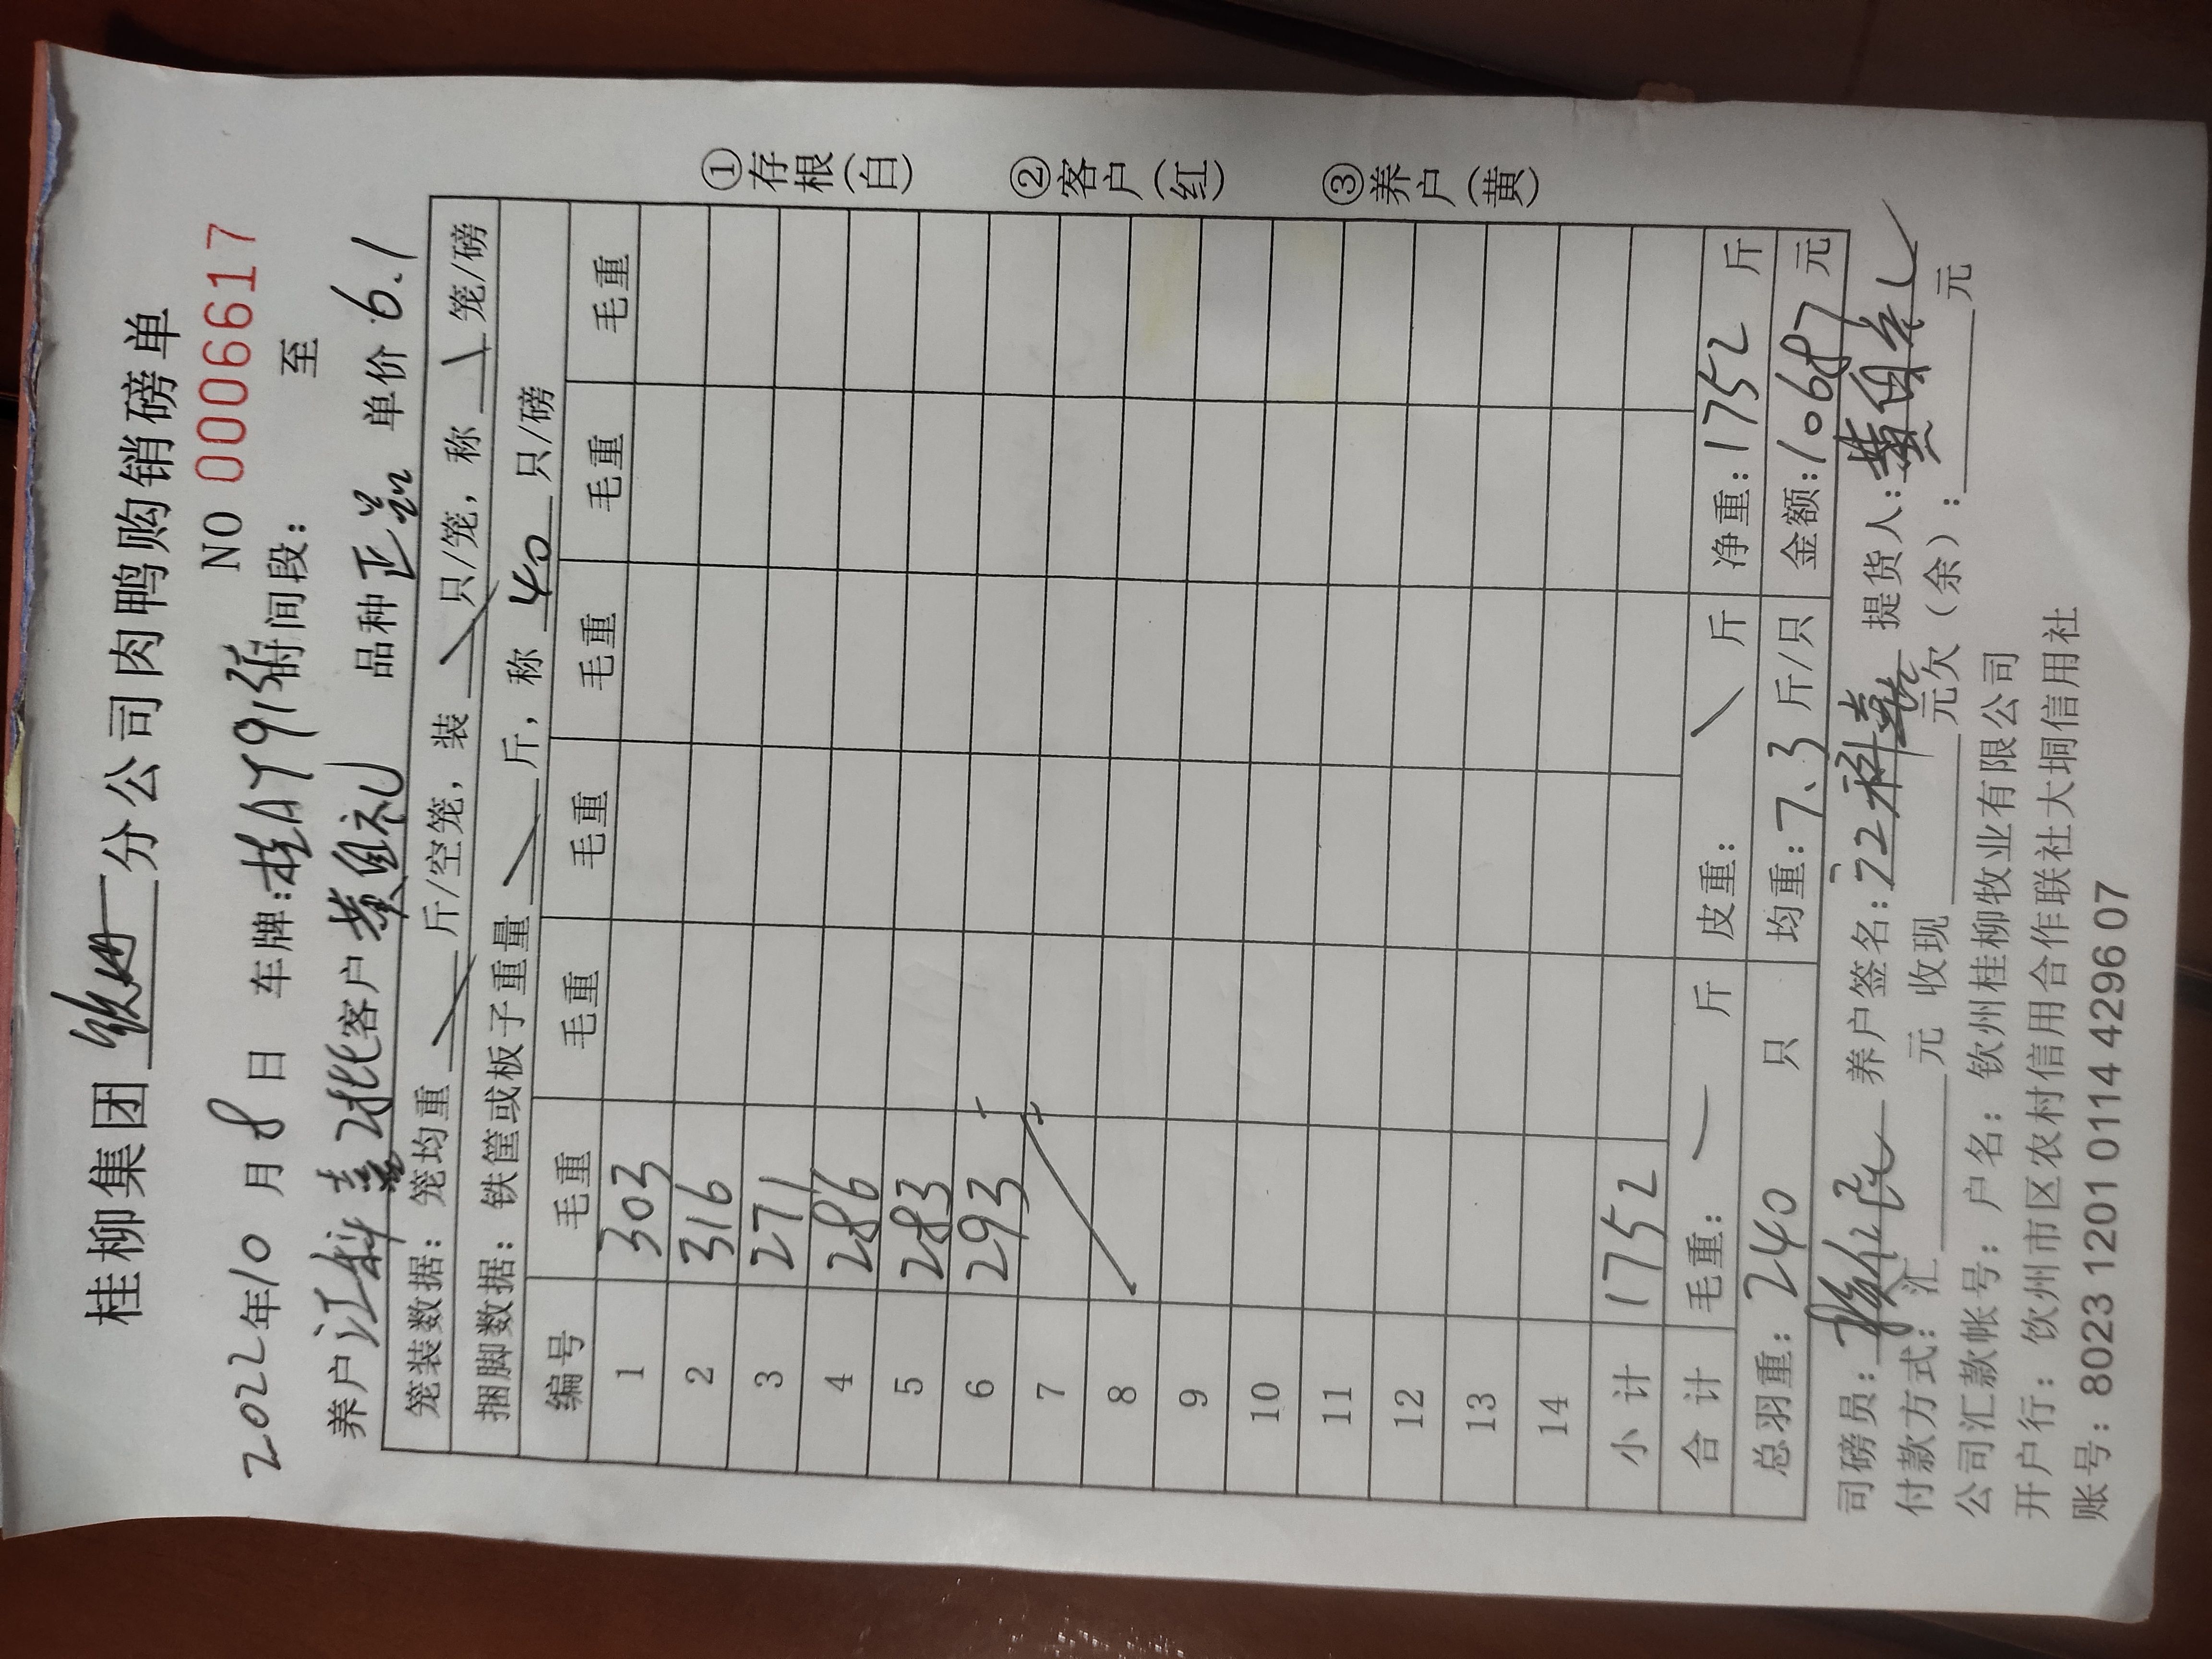 桂柳集团 分公司肉鸭购销磅单
NO 0006617
2022年10月8日 车牌:桂A 时间段: 至
养户 江科 客户 黄祖礼 品种 正 单价 6.1
笼装数据: 笼均重 \ 斤/空笼, 装 \ 只/笼, 称 \ 笼/磅
捆脚数据: 铁筐或板子重量 \ 斤, 称 40 只/磅
编号 毛重 毛重 毛重 毛重 毛重 毛重
1 303
2 316
3 271
4 286
5 283
6 293
7
8
9
10
11
12
13
14
小计 1752
合计 毛重: — 斤 皮重: \ 斤 净重: 1752 斤
总羽重: 240 只 均重: 7、3 斤/只 金额: 10687 元
司磅员: 养户签名: 提货人: 黄祖礼
付款方式: 汇 元 收现 元欠(余): 元
公司汇款帐号: 户名: 钦州桂柳牧业有限公司
开户行: 饮州市区农村信用合作联社大垌信用社
账号: 8023 1201 0114 4296 07
①存根(白)
②客户(红)
③养户(黄)